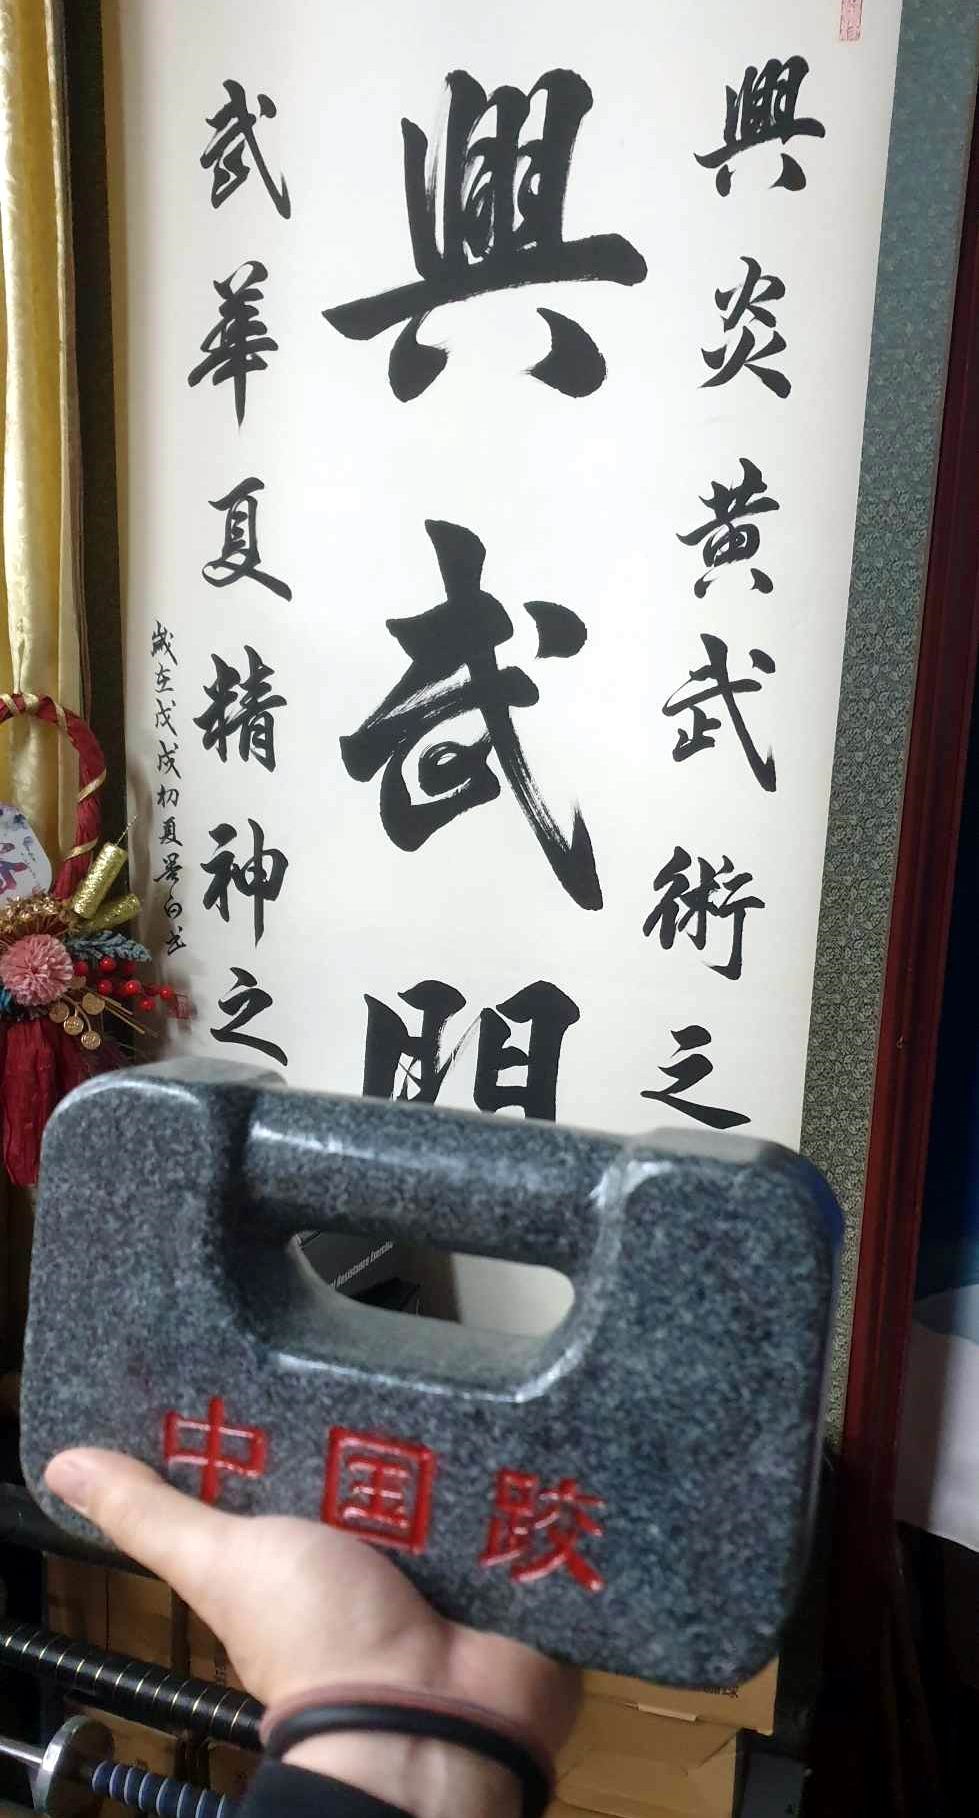 興炎黃武術之
興武門
武華夏精神之
歲在戊戌初夏墨白书
中国跤
Resistance Exercise